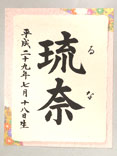 琉奈
るな
平成二十九年七月十八日生